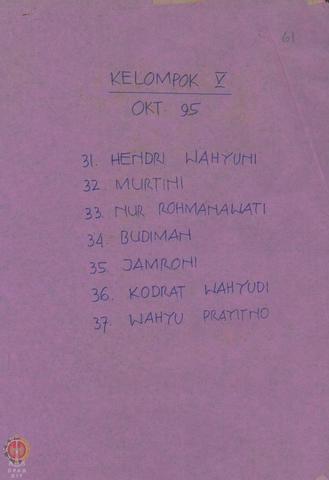 61
KELOMPOK V
OKT. 95
31. HENDRI WAHYUNI
32. MURTINI
33. NUR ROHMANAWATI
34. BUDIMAN
35. JAMRONI
36. KODRAT WAHYUDI
37. WAHYU PRAYITNO
DPAD
DIY